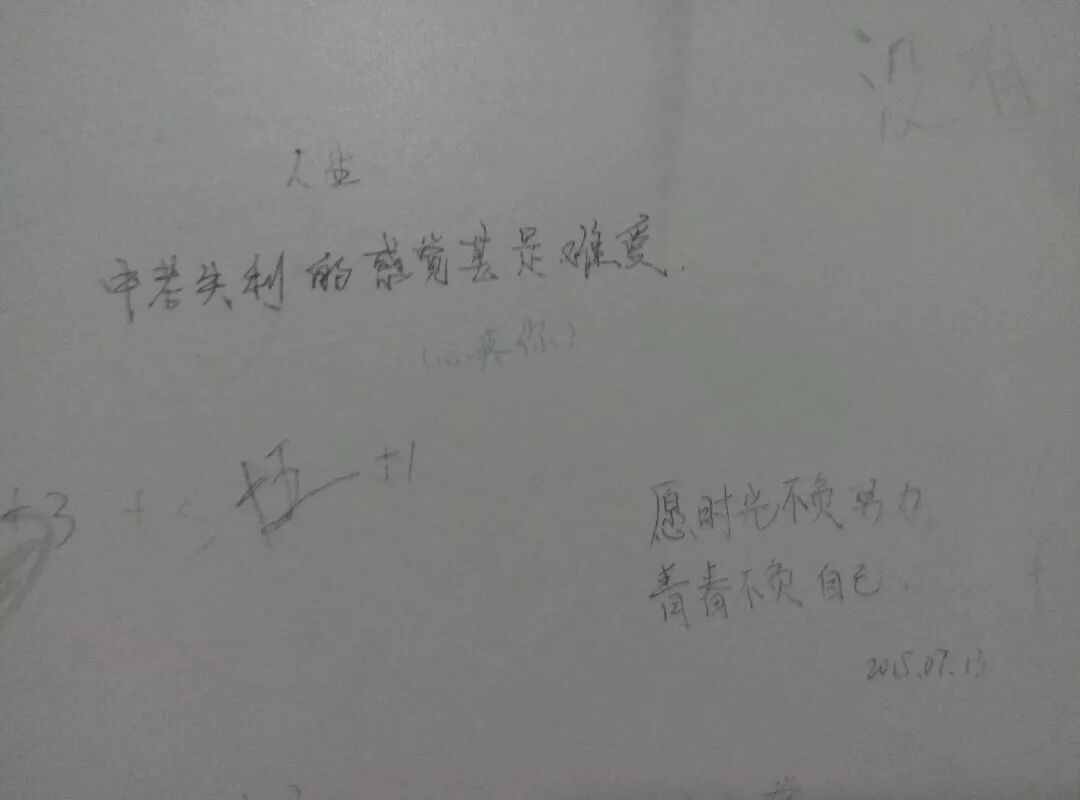 没有
人生
中考失利的感觉甚是难受.
(心疼你)
+3 +5 +1
愿时光不负努力,
青春不负自己.
2015.07.13